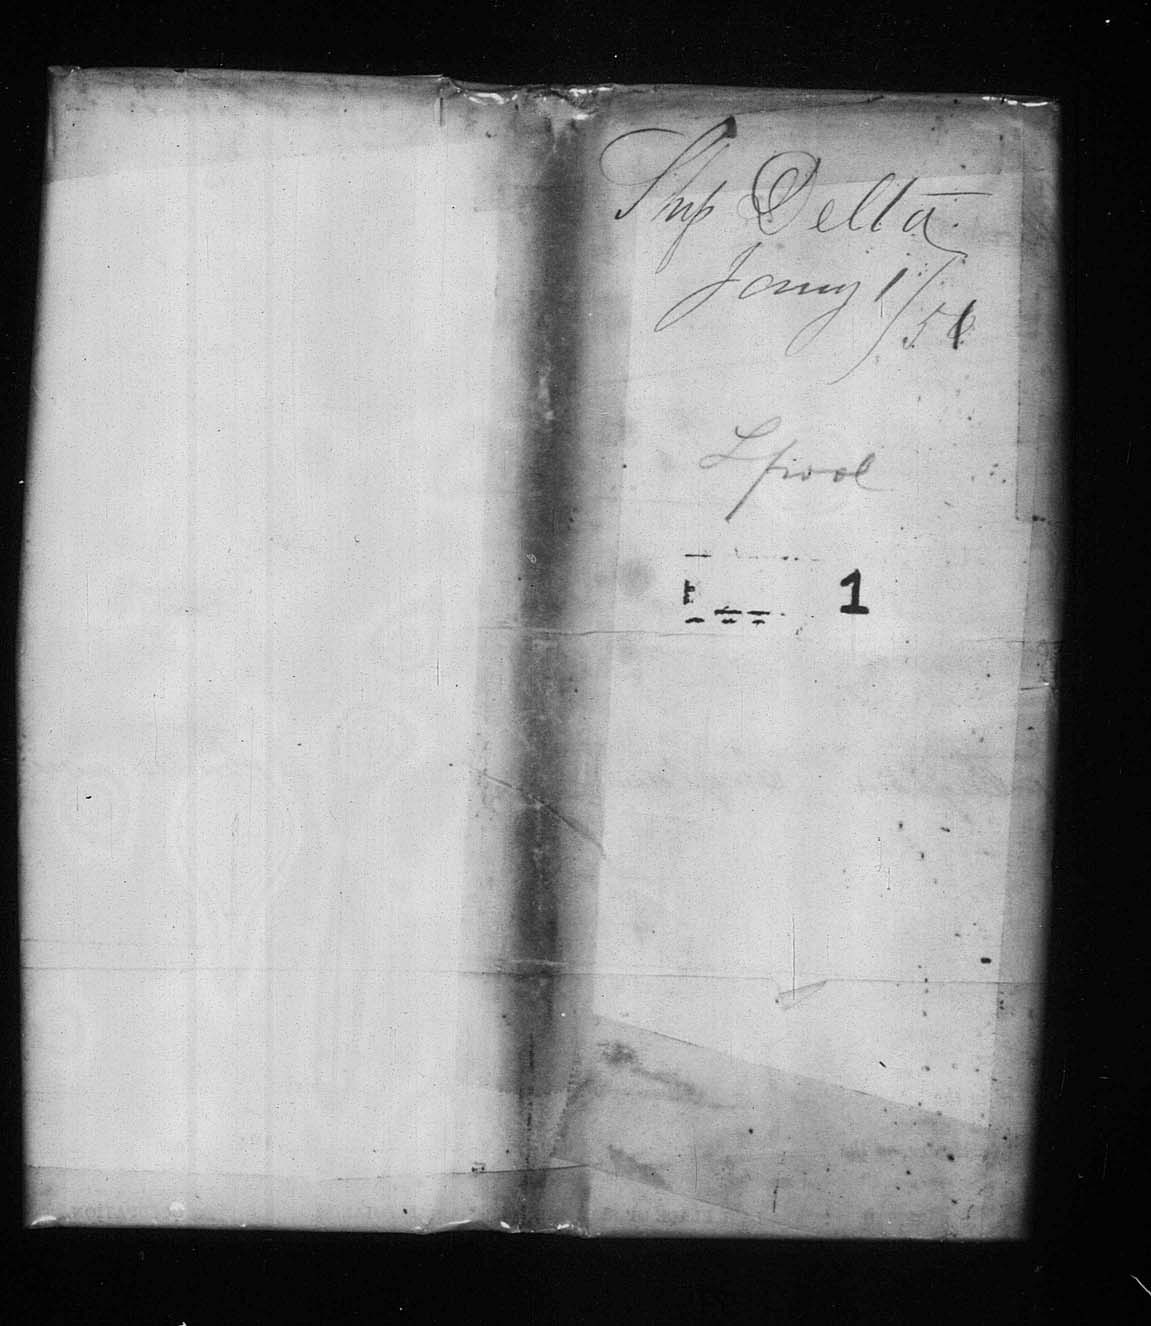 Ship Delta
Jany 1/51
Lpool
1